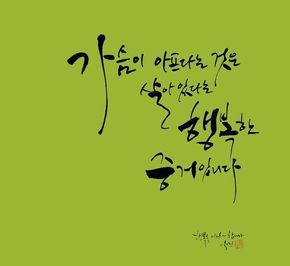 가슴이 아프다는 것은
살아있다는
행복한
증거입니다